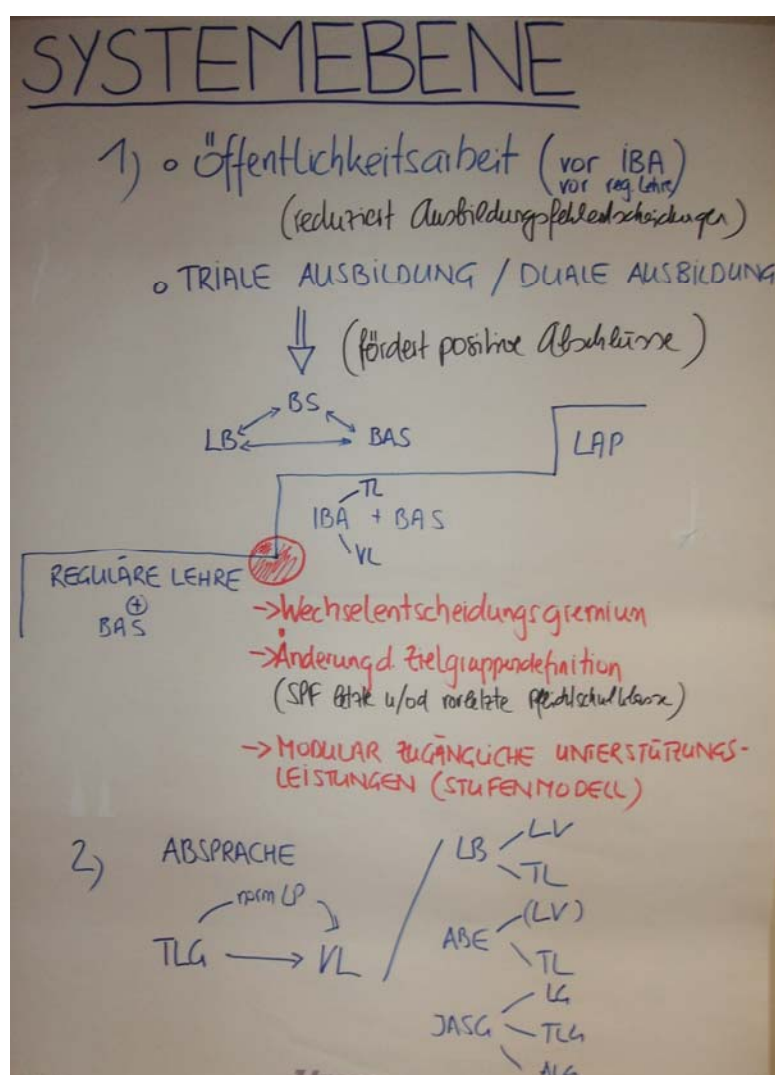 SYSTEMEBENE
1) o Öffentlichkeitsarbeit (vor IBA
vor reg. Lehre)
(reduziert Ausbildungsfehlentscheidungen)
o TRIALE AUSBILDUNG / DUALE AUSBILDUNG
(fördert positive Abschlüsse)
BS
LB BAS
LAP
TL
IBA + BAS
VL
REGULÄRE LEHRE
+
BAS
->Wechselentscheidungsgremium
->Änderung d. Zielgruppendefinition
(SPF letzte u/od vorletzte Pflichtschulklasse)
-> MODULAR ZUGÄNGLICHE UNTERSTÜTZUNGS-
LEISTUNGEN (STUFENMODELL)
2) ABSPRACHE
norm LP
TLG VL
/
LB LV
TL
ABE (LV)
TL
JASG LG
TLG
ALG